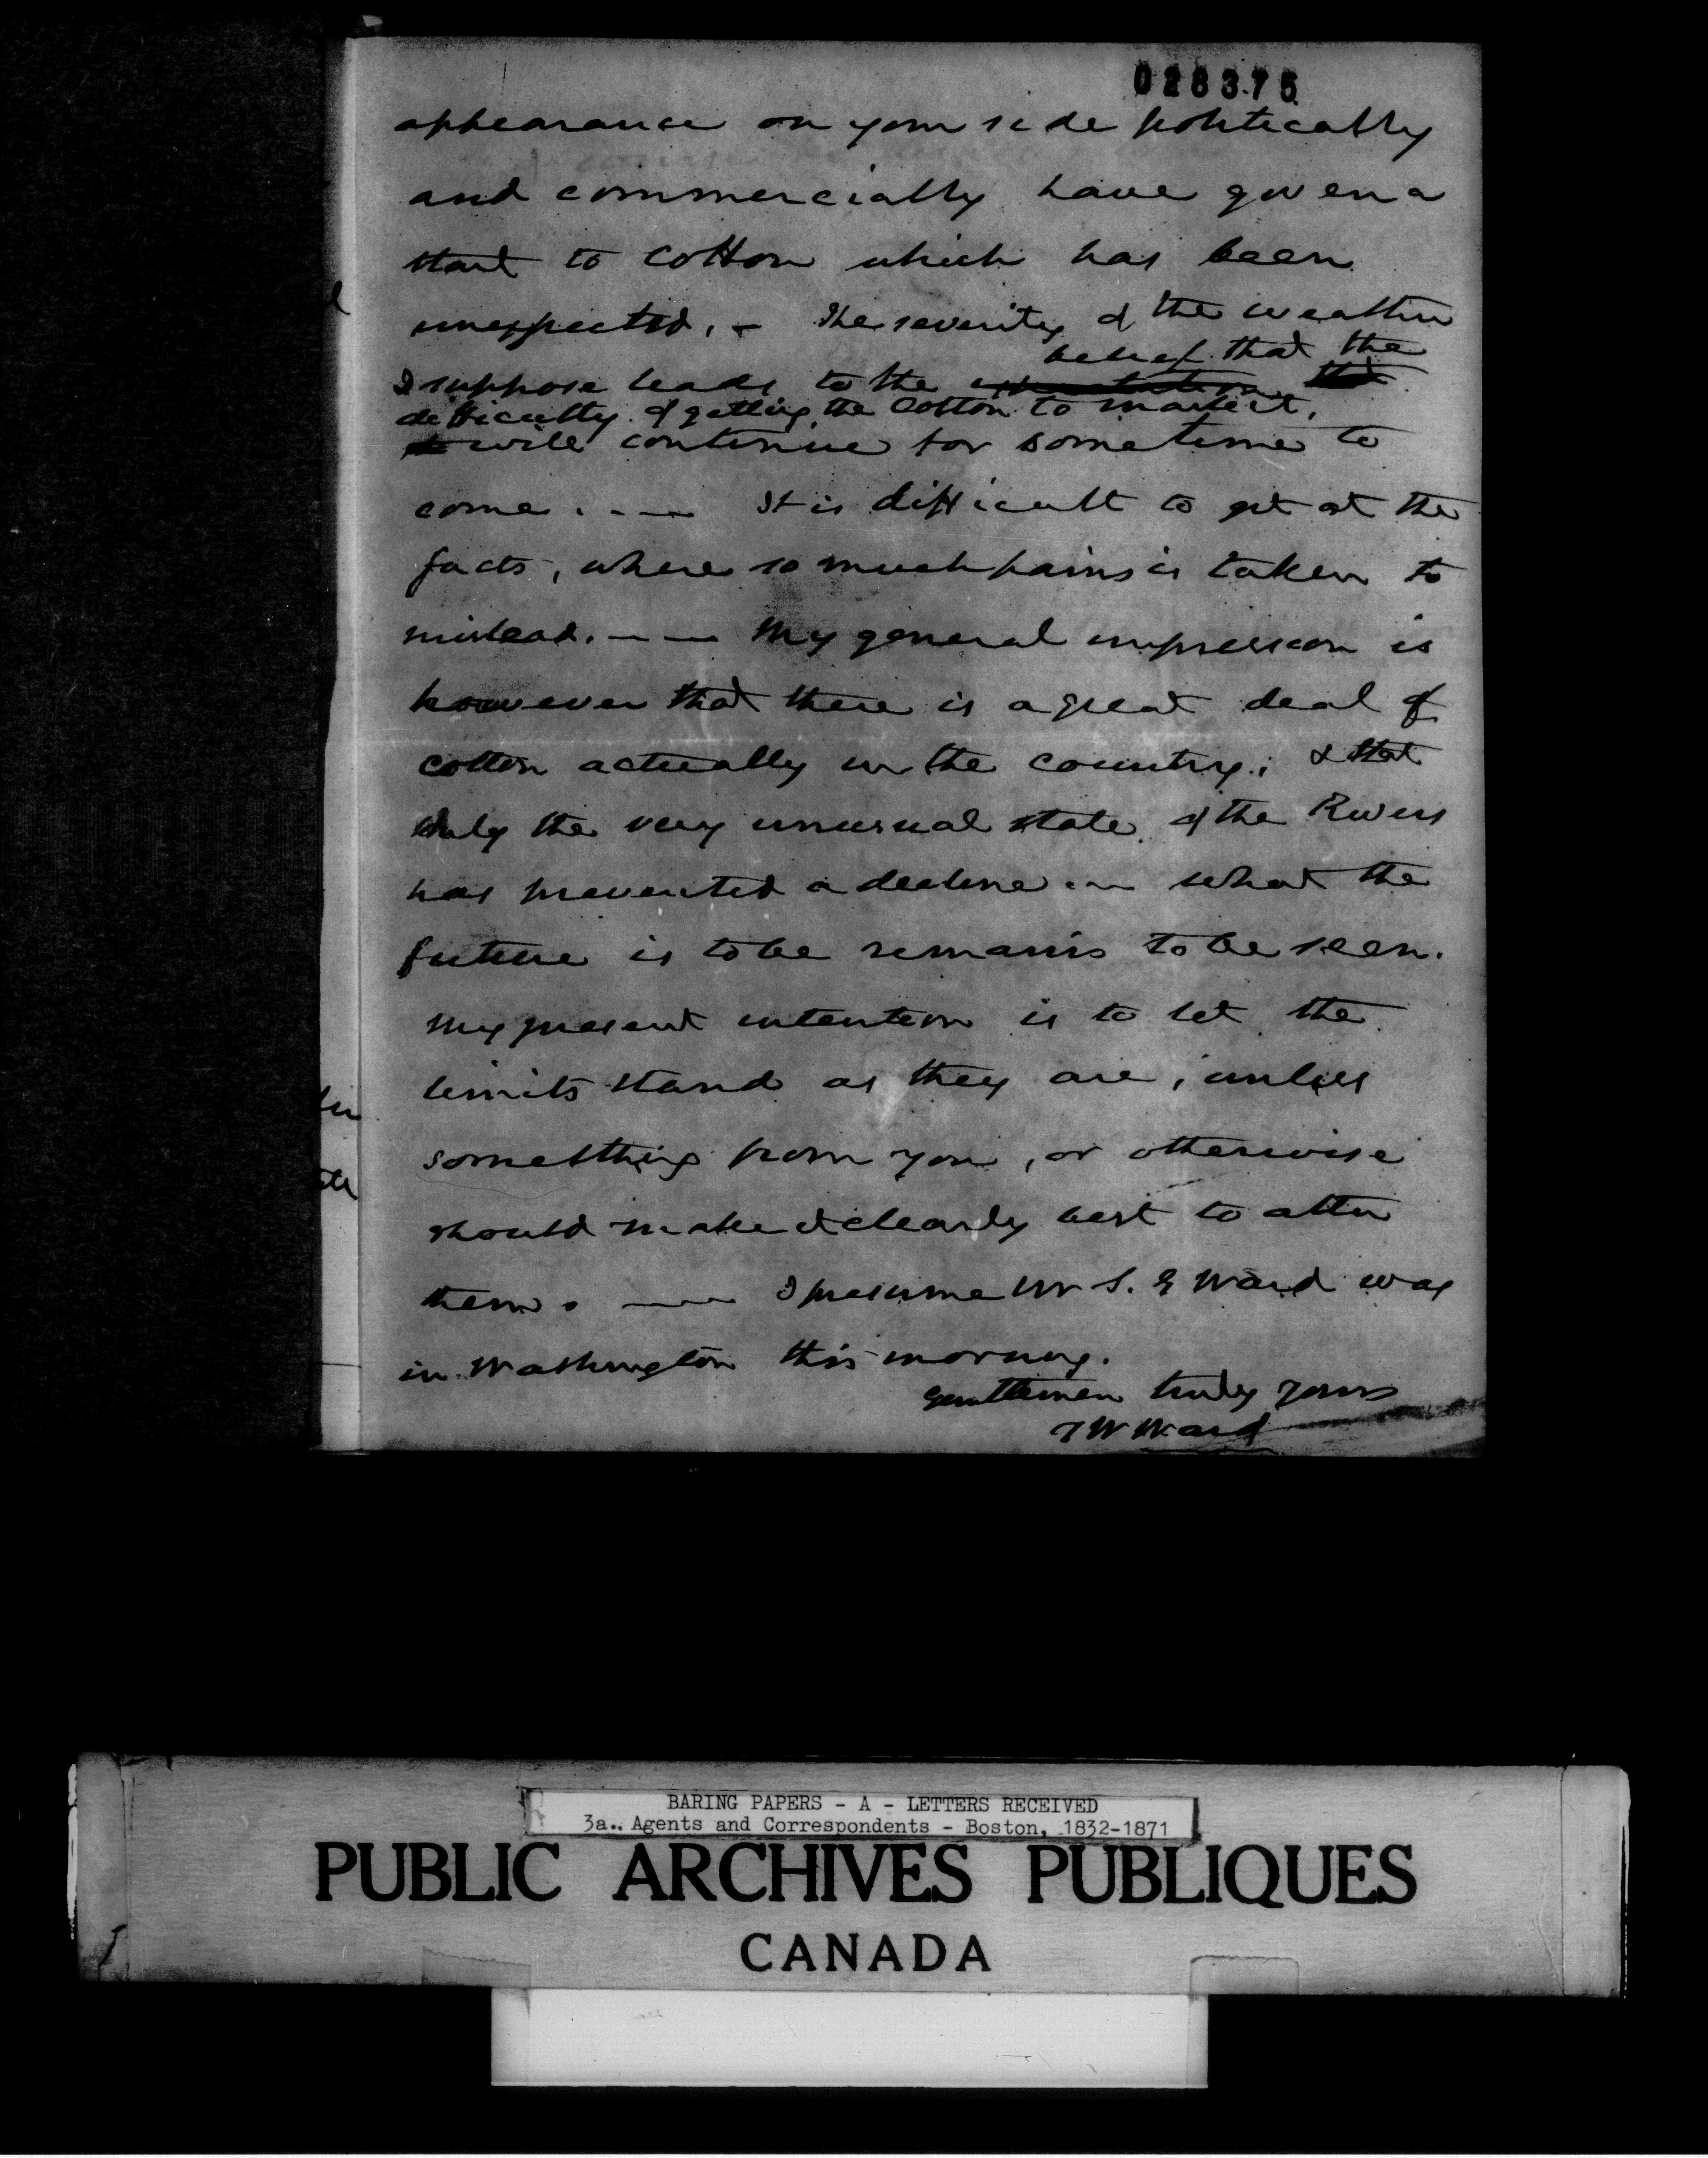 028375
appearance on your side politically
and commercially have given a
start to cotton which has been
unexpected. - The severity of the weather
belief that the
I suppose leads to the expectation that
difficulty of getting the Cotton to market,
will continue for some time to
come. - — It is difficult to get at the
facts, where so much pains is taken to
mislead. — — My general impression is
however that there is a great deal of
cotton actually in the country; & that
only the very unusual state of the Rivers
has prevented a decline — what the
future is to be remains to be seen.
My present intention is to let the
limits stand as they are, unless
something from you, or otherwise
should make it clearly best to alter
them. — I presume Mr S. G Ward was
in Washington this morning.
Gentlemen truly yours
T W Ward
BARING PAPERS - A - LETTERS RECEIVED
3a.. Agents and Correspondents - Boston, 1832-1871
PUBLIC ARCHIVES PUBLIQUES
CANADA